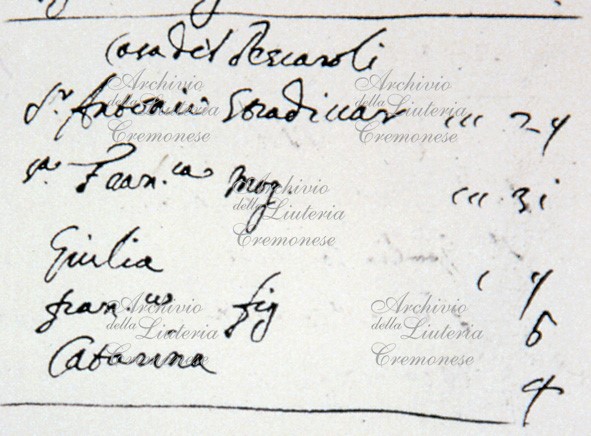 Casa del Pescaroli
Sr. Antonio Stradiuar ''' 24
sa. Fran.ca mog. ''' 31
Giulia ' 4
fran.co fig 6
Catarina 4
Archivio
della Liuteria
Cremonese
Archivio
della Liuteria
Cremonese
Archivio
della Liuteria
Cremonese
Archivio
della Liuteria
Cremonese
Archivio
della Liuteria
Cremonese